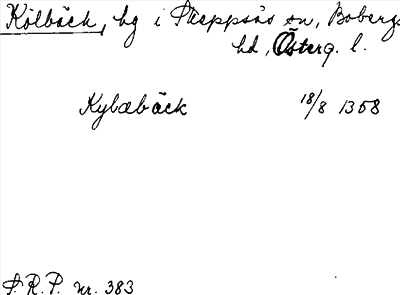 Kölbäck, hg i Skeppsås sn, Bobergs
hd, Österg. l.
Kylabäck 18/8 1358
S. R. P. nr. 383